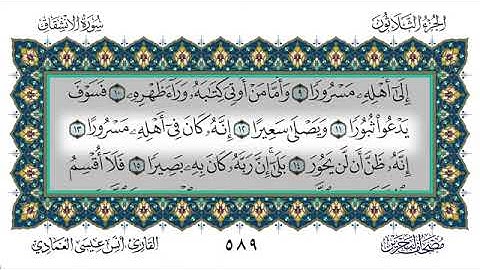 الجزء الثلاثون
سورة الانشقاق
إِلَىٰٓ أَهْلِهِۦ مَسْرُورًا ٩ وَأَمَّا مَنْ أُوتِيَ كِتَٰبَهُۥ وَرَآءَ ظَهْرِهِۦ ١٠ فَسَوْفَ
يَدْعُوا۟ ثُبُورًا ١١ وَيَصْلَىٰ سَعِيرًا ١٢ إِنَّهُۥ كَانَ فِىٓ أَهْلِهِۦ مَسْرُورًا ١٣
إِنَّهُۥ ظَنَّ أَن لَّن يَحُورَ ١٤ بَلَىٰٓ إِنَّ رَبَّهُۥ كَانَ بِهِۦ بَصِيرًا ١٥ فَلَآ أُقْسِمُ
٥٨٩
القارئ أنس عيسى العمادي